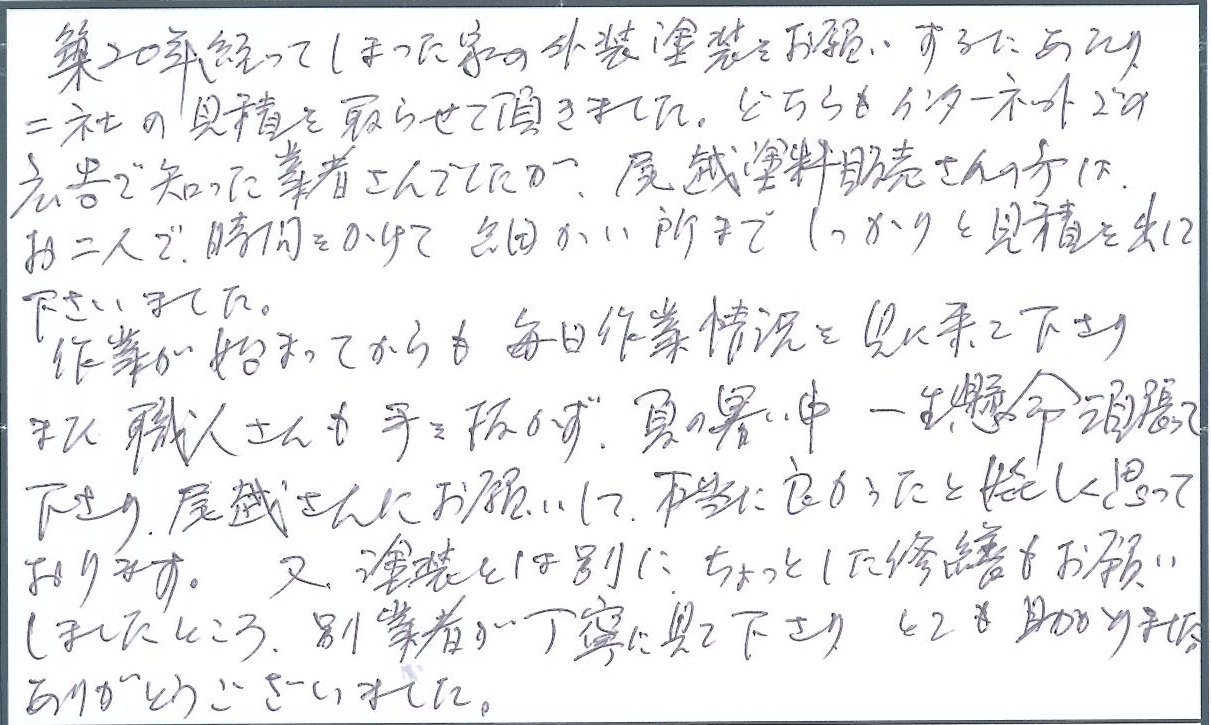 築20年経ってしまった家の外装塗装をお願いするにあたり
二社の見積を取らせて頂きました。どちらもインターネットでの
広告で知った業者さんでしたが、尾越塗料販売さんの方は、
お二人で、時間をかけて細かい所までしっかりと見積を出して
下さいました。
作業が始まってからも毎日作業情況を見に来て下さり
また職人さんも手を抜かず、夏の暑い中一生懸命頑張って
下さり、尾越さんにお願いして、本当に良かったと嬉しく思って
おります。又、塗装とは別に、ちょっとした修繕もお願い
しましたところ、別業者が丁寧に見て下さりとても助かりました。
ありがとうございました。